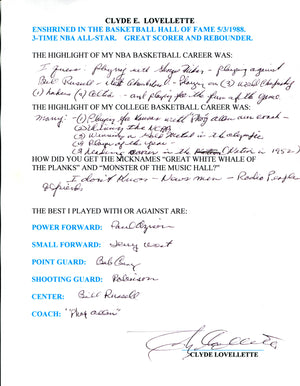 CLYDE E. LOVELLETTE
ENSHRINED IN THE BASKETBALL HALL OF FAME 5/3/1988.
3-TIME NBA ALL-STAR. GREAT SCORER AND REBOUNDER.
THE HIGHLIGHT OF MY NBA BASKETBALL CAREER WAS:
I guess - Playing with George Mikan - playing against
Bill Russell - Wilt Chamberlain - Playing on (3) World Championship
(1) Lakers (2) Celtics - and playing for the fun of the game
THE HIGHLIGHT OF MY COLLEGE BASKETBALL CAREER WAS:
Many: - (1) Playing for Kansas with Phog Allen our coach -
(2) Winning the NCAA
(3) Winning a Gold Medal in the Olympic
(4) Player of the year -
(5) scorer in the Nation in 1952)
HOW DID YOU GET THE NICKNAMES “GREAT WHITE WHALE OF
THE PLANKS” AND “MONSTER OF THE MUSIC HALL?”
I don't Know - News men - Radio People
THE BEST I PLAYED WITH OR AGAINST ARE:
POWER FORWARD: Paul Arizin
SMALL FORWARD: Jerry West
POINT GUARD: Bob Cousy
SHOOTING GUARD: Robinson
CENTER: Bill Russell
COACH: "Phog Allen"
Clyde Lovellette
CLYDE LOVELLETTE